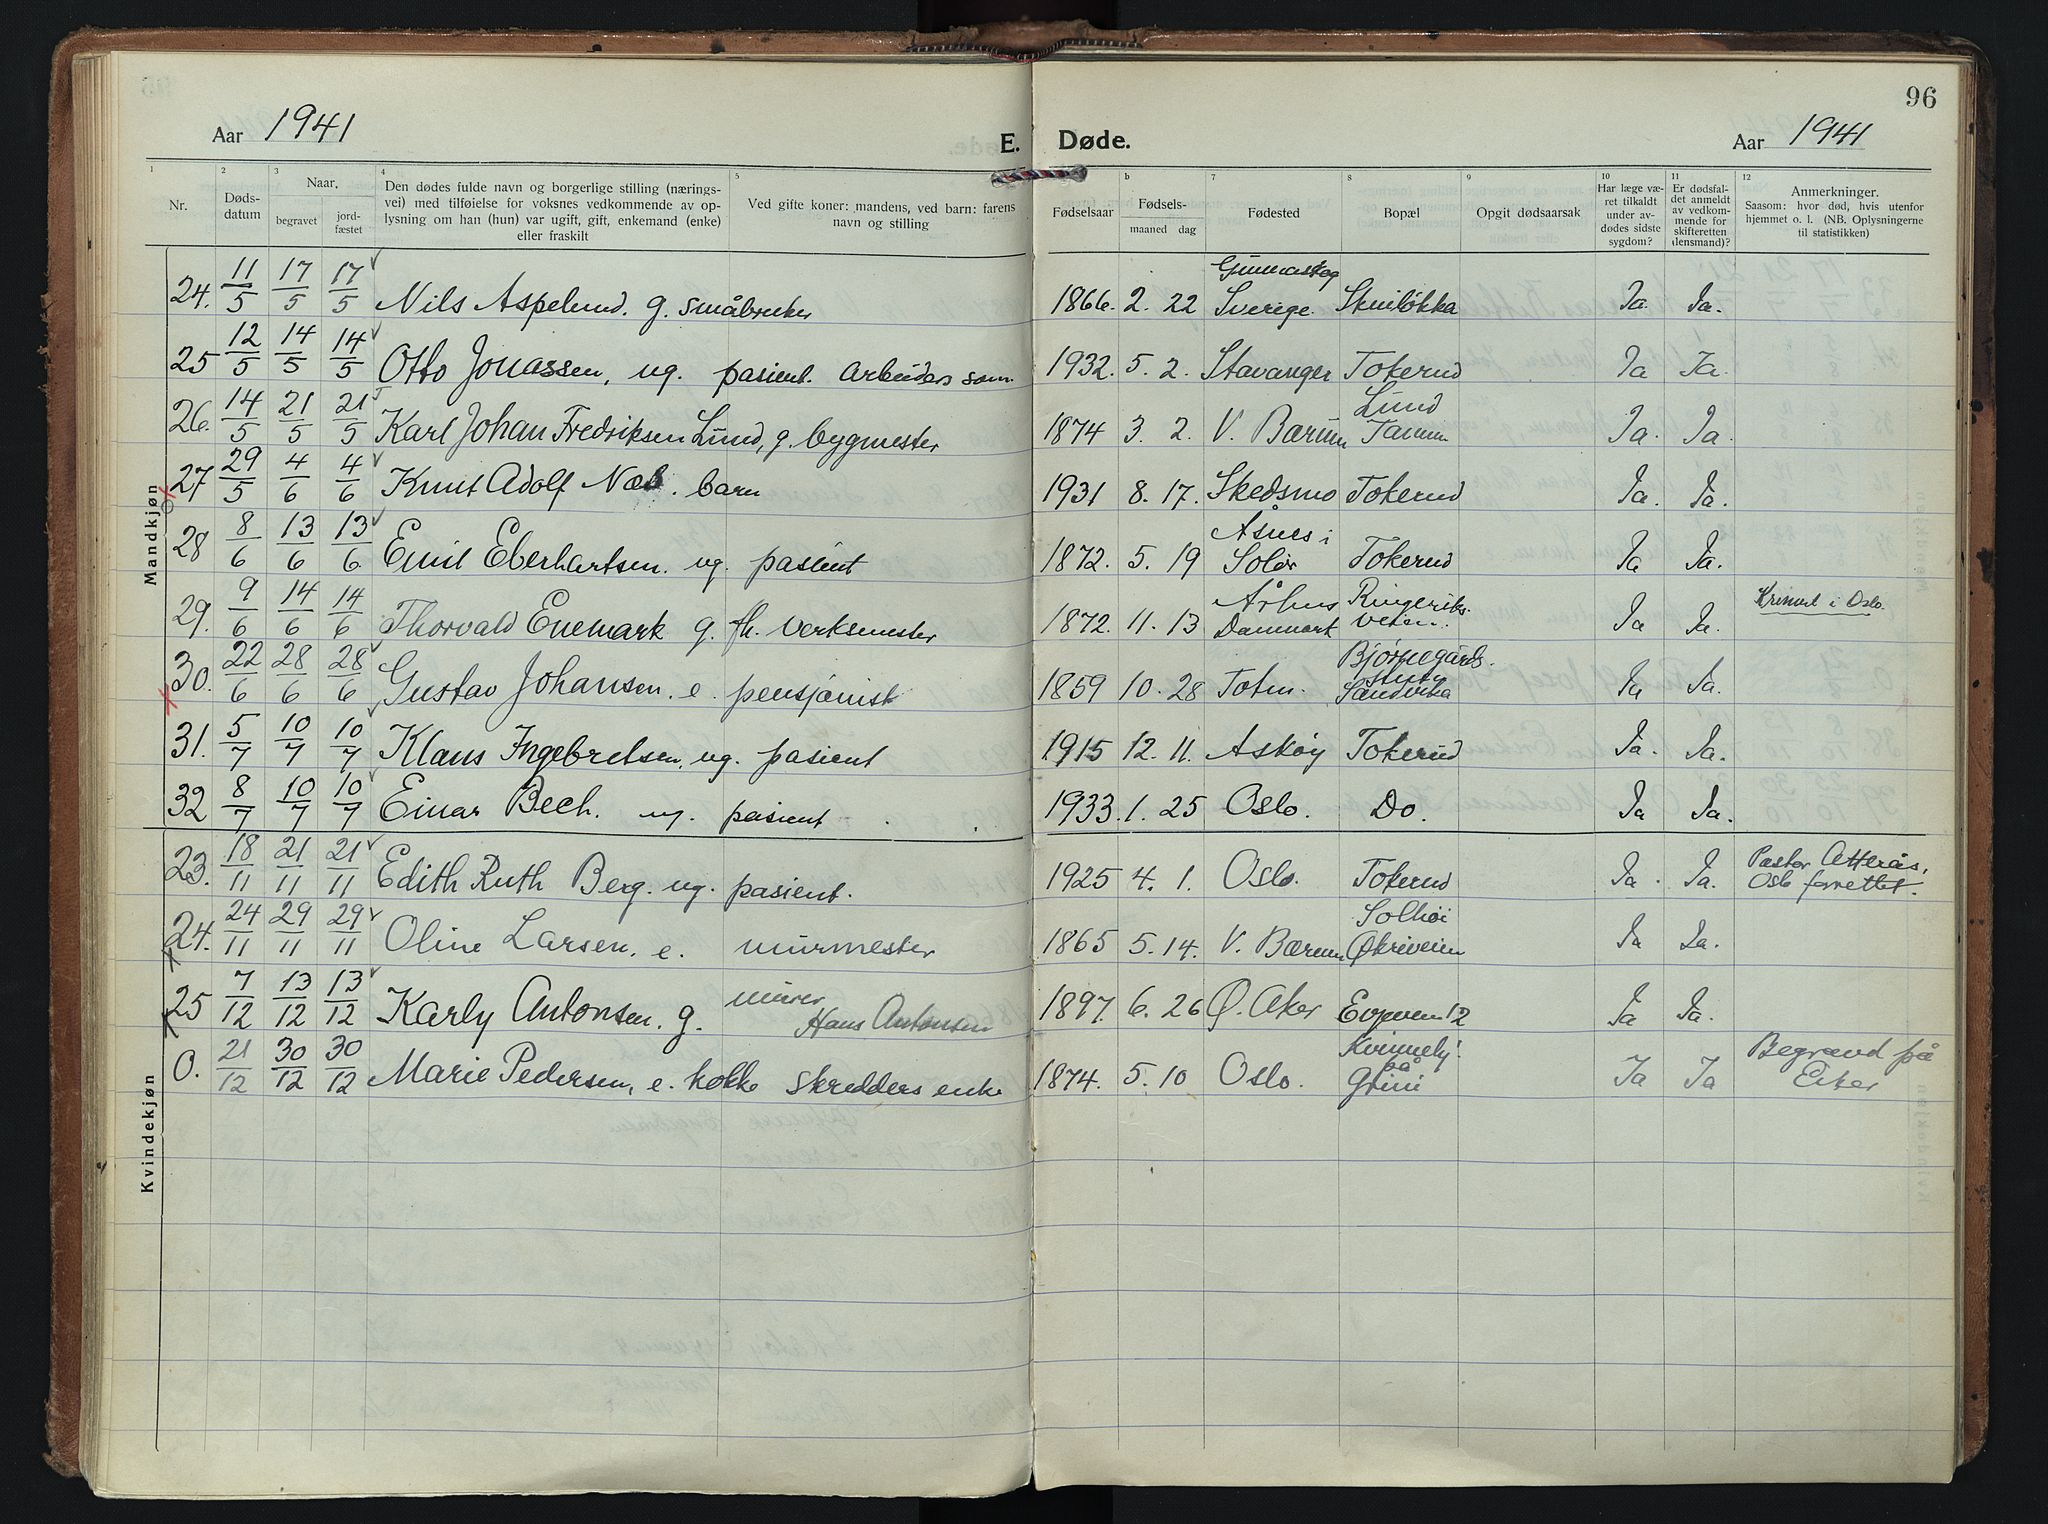 96
Aar 1941
E. Døde.
Aar 1941
1 2 3 4 5 b 7 8 9 10 11 12
Nr.
Døds-
datum
Naar.
begravet
jord-
fæstet
Den dødes fulde navn og borgerlige stilling (nærings-
vei) med tilføielse for voksnes vedkommende av op-
lysning om han (hun) var ugift, gift, enkemand (enke)
eller fraskilt
Ved gifte koner: mandens, ved barn: farens
navn og stilling
Fødselsaar
Fødsels-
maaned dag
Fødested
Bopæl
Opgit dødsaarsak
Har læge væ-
ret tilkaldt
under av-
dødes sidste
sygdom?
Er dødsfal-
det anmeldt
av vedkom-
mende for
skifteretten
(lensmand)?
Anmerkninger.
Saasom: hvor død, hvis utenfor
hjemmet o. l. (NB. Oplysningerne
til statistikken)
Mandkjøn
24. 11/5 17/5 17/5 Nils Aspelund. g. småbruker 1866. 2. 22 Gunnarskog Sverige. Skuiløkka Ja. Ja.
25 12/5 14/5 14/5 Otto Jonassen, ug. pasient. Arbeiders søn. 1932. 5. 2. Stavanger Tokerud Ja Ja.
26. 14/5 21/5 21/5 Karl Johan Fredriksen Lund, g. bygmester 1874 3. 2. V. Bærum Lund Tanum Ja. Ja.
27 29/5 4/6 4/6 Knut Adolf Næs. barn 1931 8. 17. Skedsmo Tokerud Ja. Ja.
28 8/6 13/6 13/6 Emil Eberhartsen. ug. pasient 1872. 5. 19 Åsnes i Solør Tokerud Ja Ja.
29. 9/6 14/6 14/6 Thorvald Enemark g. fh. verksmester 1872. 11. 13 Århus Danmark Ringeriks- veien. Ja Ja. Kremert i Oslo.
30. 22/6 28/6 28/6 Gustav Johansen. e. pensjonist 1859 10. 28 Toten. Bjørnegårds- Sandvika Ja Ja.
31. 5/7 10/7 10/7 Klaus Ingebretsen. ug. pasient 1915 12. 11. Askøy Tokerud Ja. Ja.
32 8/7 10/7 10/7 Einar Bech. ug. pasient 1933. 1. 25 Oslo. Do. Ja Ja.
Kvindekjøn
23. 18/11 21/11 21/11 Edith Ruth Berg. ug. pasient. 1925 4. 1. Oslo. Tokerud Ja. Ja. Pastor Atterås, Oslo forrettet.
24. 24/11 29/11 29/11 Oline Larsen. e. murmester 1865 5. 14. V. Bærum Solhøi Økriveien Ja Ja.
25 7/12 13/12 13/12 Karly Antonsen. g. murer Hans Antonsen 1897. 6. 26 Ø. Aker 12 Ja Ja.
0. 21/12 30/12 30/12 Marie Pedersen, e. kokke skredders enke 1874. 5. 10 Oslo. på Grini Ja Ja Begravd på Eiker